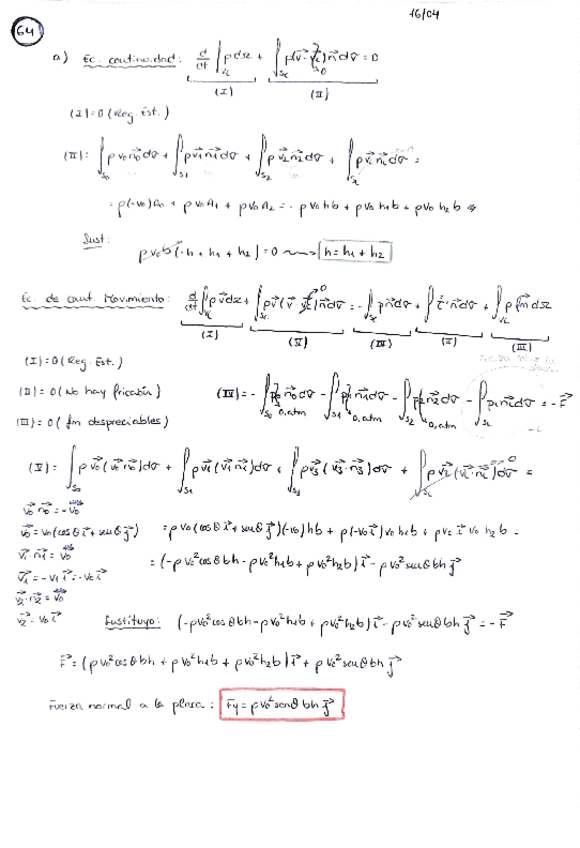 16/04
64
a) Ec. continuidad: d/dt ∫_Vc ρdΩ + ∫_Sc ρ(v⃗ - v⃗c)n⃗dσ = 0
(I) (II)
(I)=0 (Reg. Est.)
(II): ∫_S0 ρ v⃗0 n⃗0 dσ + ∫_S1 ρ v⃗1 n⃗1 dσ + ∫_S2 ρ v⃗2 n⃗2 dσ + ∫_SL ρ v⃗L n⃗L dσ =
= ρ(-v0)A0 + ρ v0 A1 + ρ v0 A2 = - ρ v0 h b + ρ v0 h1 b + ρ v0 h2 b ⇒
Sust:
ρ v0 b (-h + h1 + h2) = 0 ⇝ h = h1 + h2
Ec. de cant. Movimiento: d/dt ∫_Vc ρ v⃗ dΩ + ∫_Sc ρ v⃗ (v⃗ - v⃗c) n⃗ dσ = - ∫_Sc p n⃗ dσ + ∫ τ⃗' n⃗ dσ + ∫_Vc ρ f⃗m dΩ
0
(I) (V) (IV) (II) (III)
(I)=0 (Reg. Est.)
(II)=0 (No hay fricción) (IV)= - ∫_S0 p0 n⃗0 dσ - ∫_S1 p1 n⃗1 dσ - ∫_S2 p2 n⃗2 dσ - ∫_SL pL n⃗L dσ = - F⃗
0, atm 0, atm 0, atm
(III)=0 (fm despreciables)
(V): ∫_S0 ρ v⃗0 (v⃗0 n⃗0) dσ + ∫_S1 ρ v⃗1 (v⃗1 n⃗1) dσ + ∫_S3 ρ v⃗3 (v⃗3 · n⃗3) dσ + ∫_SL ρ v⃗2 (v⃗L · n⃗L) dσ =
v⃗0 n⃗0 = -v0
v⃗0 = v0 (cosθ i⃗ + senθ j⃗) = ρ v0 (cosθ i⃗ + senθ j⃗)(-v0) h b + ρ (-v0 i⃗) v0 h1 b + ρ v0 i⃗ v0 h2 b =
v⃗1 · n⃗1 = v0
= (-ρ v0² cosθ b h - ρ v0² h1 b + ρ v0² h2 b) i⃗ - ρ v0² senθ b h j⃗
v⃗1 = -v1 i⃗ = -v0 i⃗
v⃗2 · n⃗2 = v0
v⃗2 = v0 i⃗ Sustituyo: (-ρ v0² cosθ b h - ρ v0² h1 b + ρ v0² h2 b) i⃗ - ρ v0² senθ b h j⃗ = - F⃗
F⃗ = (ρ v0² cosθ b h + ρ v0² h1 b + ρ v0² h2 b) i⃗ + ρ v0² senθ b h j⃗
Fuerza normal a la placa: Fy = ρ v0² senθ b h j⃗